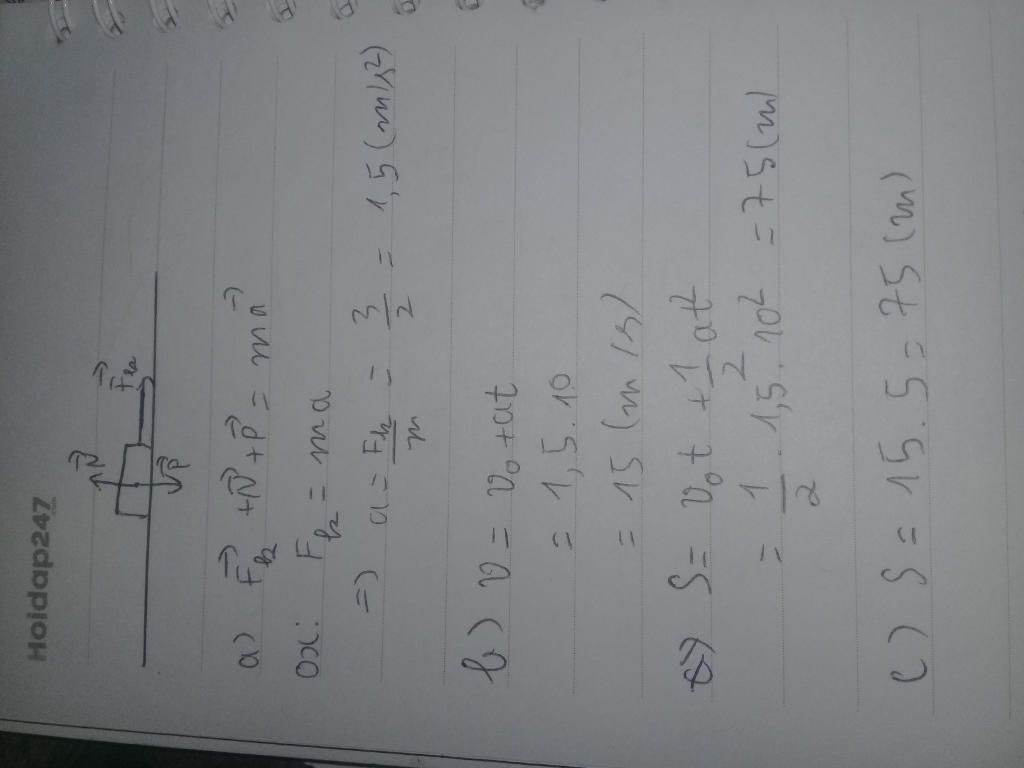 Hoidap247
.com
N⃗
F⃗k
P⃗
a) F⃗k + N⃗ + P⃗ = ma⃗
Ox: Fk = ma
=> a = Fk/m = 3/2 = 1,5 (m/s²)
b) v = v₀ + at
= 1,5 . 10
= 15 (m/s)
S = v₀t + 1/2 at²
= 1/2 . 1,5 . 10² = 75 (m)
c) S = 15 . 5 = 75 (m)